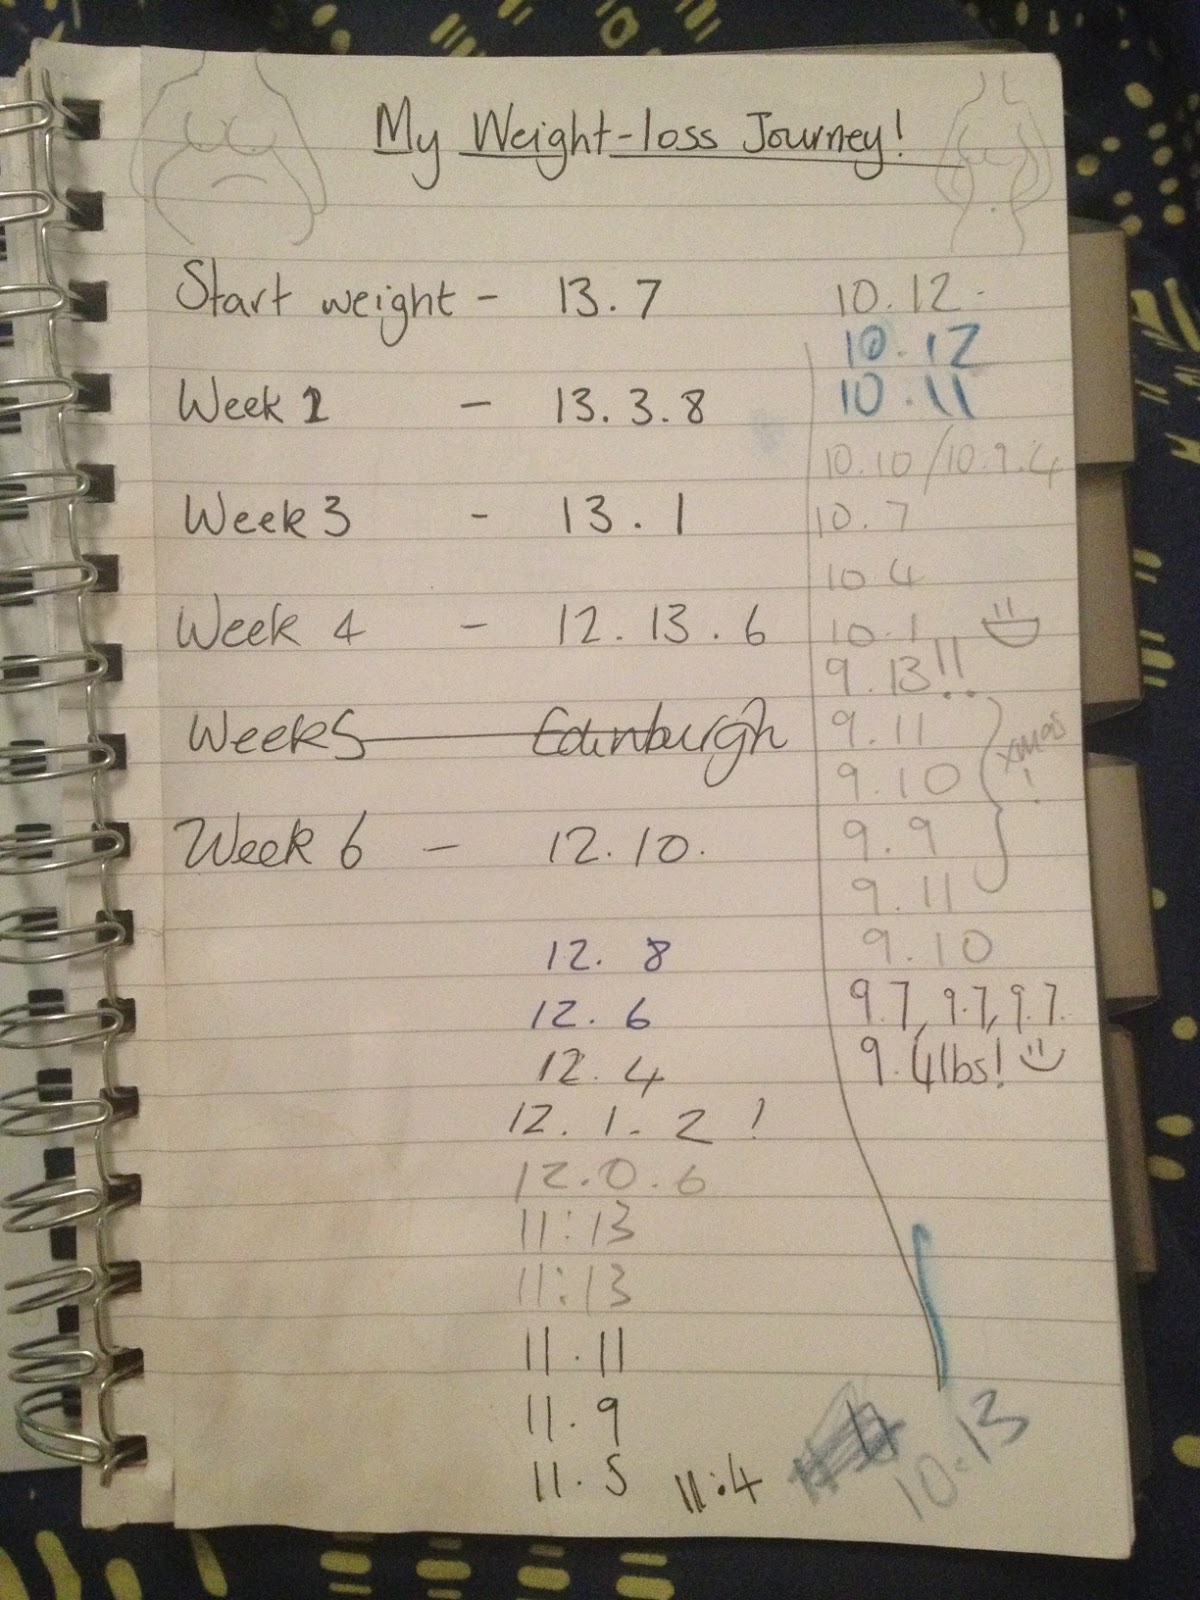 My Weight-loss Journey!
Start weight - 13.7
Week 2 - 13.3.8
Week 3 - 13.1
Week 4 - 12.13.6
Week 5 Edinburgh
Week 6 - 12.10.
12. 8
12. 6
12. 4
12. 1. 2 !
12.0.6
11:13
11:13
11.11
11.9
11.5 11:4
10:13
10.12.
10.12
10.11
10.10/10.9.4
10.7
10 4
10.1
9.13!!
9.11
9.10
9.9
xmas!
9.11
9.10
9.7, 9.7, 9.7.
9.4lbs!